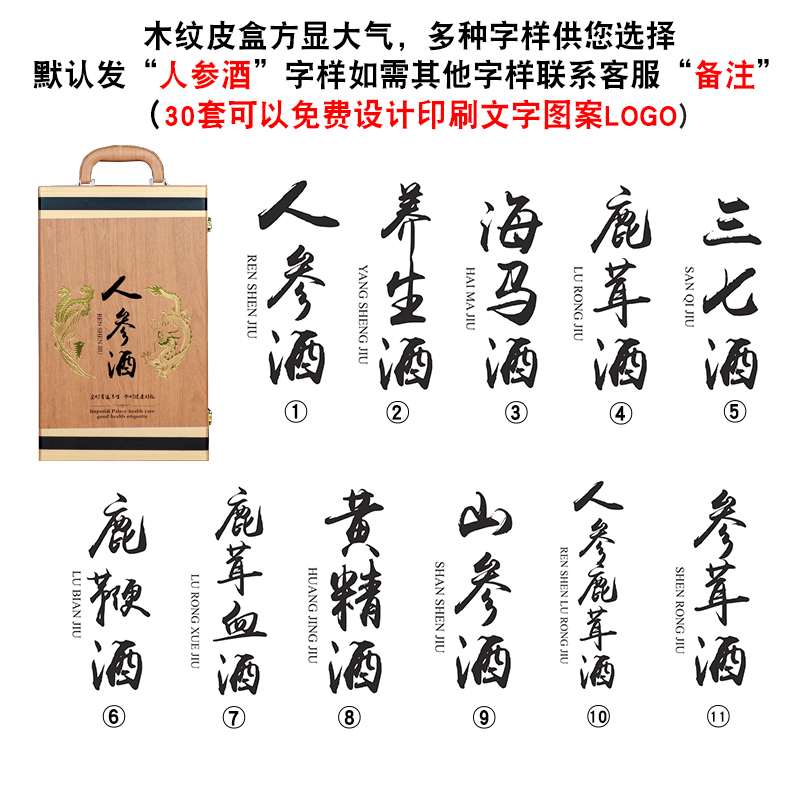 木纹皮盒方显大气，多种字样供您选择
默认发“人参酒”字样如需其他字样联系客服“备注”
（30套可以免费设计印刷文字图案LOGO）
人参酒
REN SHEN JIU
Imperial Palace health care
good health etiquette
人参酒
REN SHEN JIU
①
养生酒
YANG SHENG JIU
②
海马酒
HAI MA JIU
③
鹿茸酒
LU RONG JIU
④
三七酒
SAN QI JIU
⑤
鹿鞭酒
LU BIAN JIU
⑥
鹿茸血酒
LU RONG XUE JIU
⑦
黄精酒
HUANG JING JIU
⑧
山参酒
SHAN SHEN JIU
⑨
人参鹿茸酒
REN SHEN LU RONG JIU
⑩
参茸酒
SHEN RONG JIU
⑪